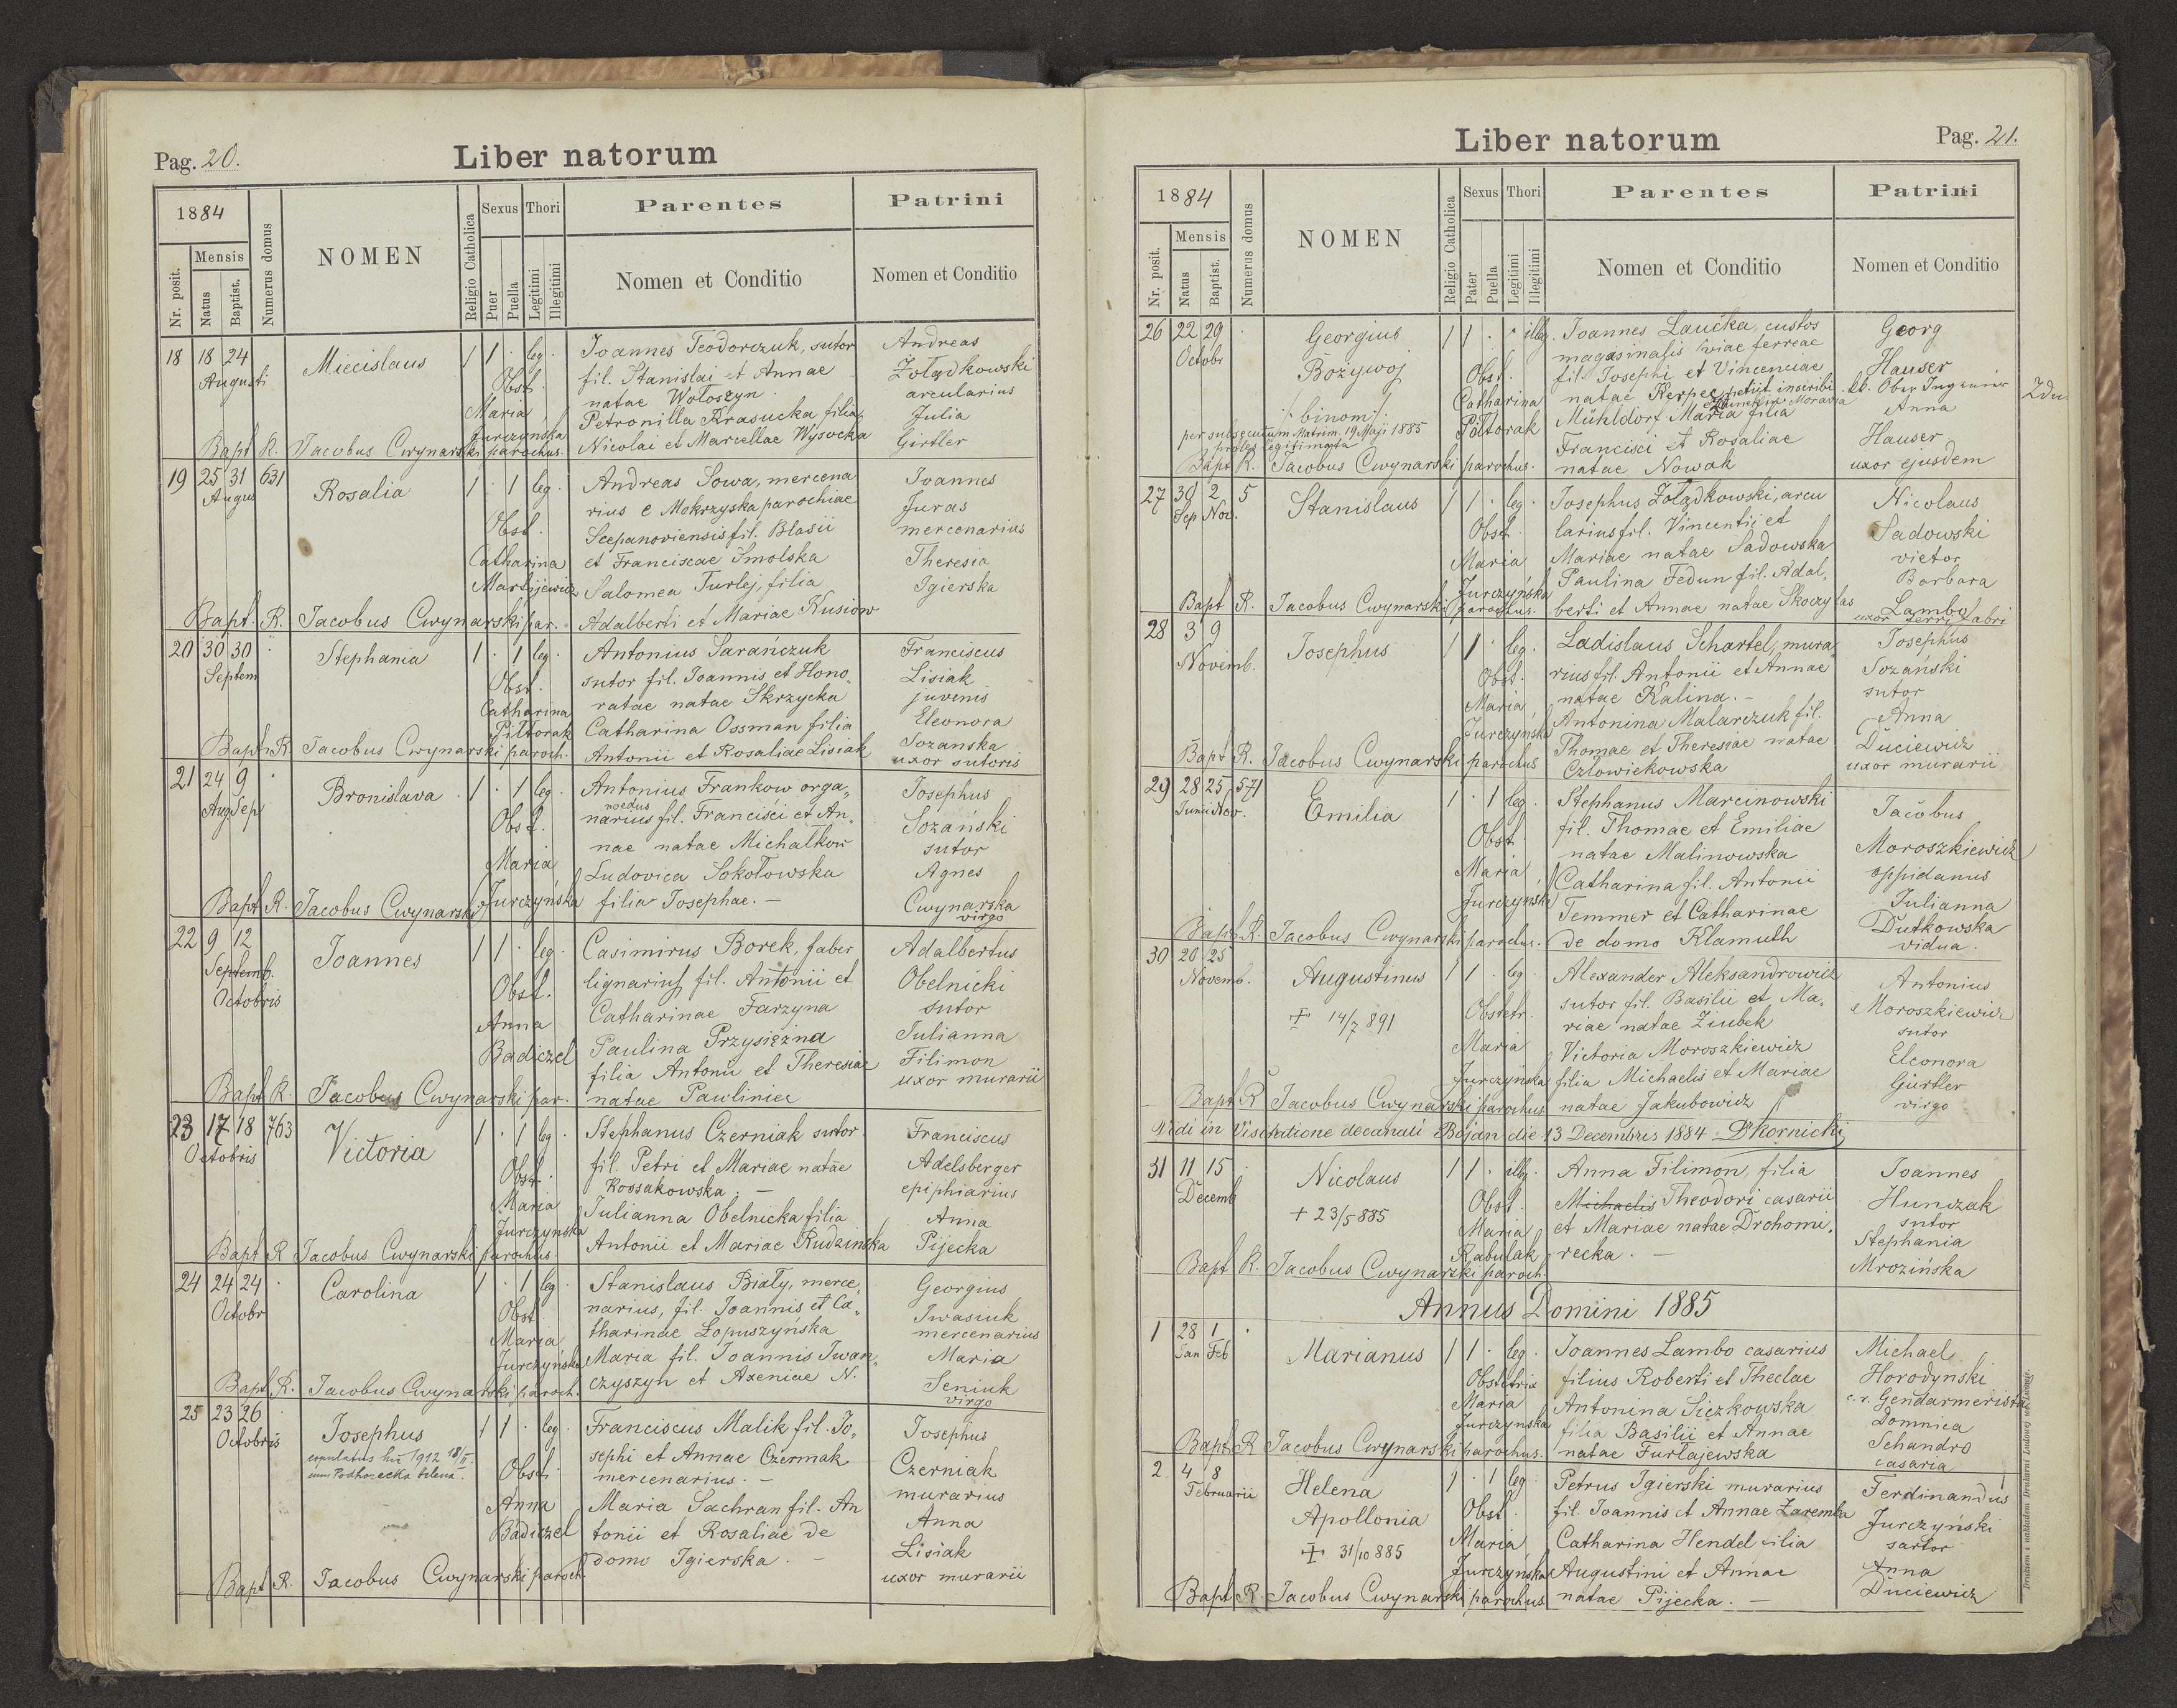 Pag. 20.
Liber natorum
1884
Mensis
Nr. posit.
Natus
Baptist.
Numerus domus
NOMEN
Religio Catholica
Sexus
Puer
Puella
Thori
Legitimi
Illegitimi
Parentes
Nomen et Conditio
Patrini
Nomen et Conditio
18 18 24
Augusti
Miecislaus
1 1 · leg ·
Obst.
Maria
Jurczynska
Joannes Teodorczuk, sutor
fil. Stanislai et Annae
natae Wołoszyn
Petronilla Krasucka filia
Nicolai et Marcellae Wysocka
Andreas
Żołądkowski
arcularius
Julia
Girtler
Bapt R. Jacobus Cwynarski parochus.
19 25 31 631
Augus
Rosalia
1 · 1 leg ·
Obst.
Catharina
Martijewicz
Andreas Sowa, mercena
rius e Mokrzyska parochiae
Scepanoviensis fil. Blasii
et Franciscae Smolska
Salomea Turlej, filia
Adalberti et Mariae Kusiow
Joannes
Juras
mercenarius
Theresia
Igierska
Bapt. R. Jacobus Cwynarski par.
20 30 30 ·
Septem
Stephania
1 · 1 leg ·
Obst.
Catharina
Piltorak
Antonius Sarańczuk
sutor fil. Joannis et Hono„
ratae natae Skrzycka
Catharina Ossman filia
Antonii et Rosaliae Lisiak
Franciscus
Lisiak
juvenis
Eleonora
Sozanska
uxor sutoris
Bapt R. Jacobus Cwynarski paroch.
21 24 9 ·
Aug Sep
Bronislava
· 1 · 1 leg ·
Obst.
Maria
Jurczyńska
Antonius Frankow orga„
noedus
narius fil. Francisci et An„
nae natae Michałkow
Ludovica Sokołowska
filia Josephae. —
Josephus
Sozański
sutor
Agnes
Cwynarska
virgo
Bapt R. Jacobus Cwynarski
22 9 12
Septemb.
Octobris
Joannes
1 1 · leg ·
Obst.
Anna
Badiczel
Casimirus Borek, faber
lignarius fil. Antonii et
Catharinae Farzyna
Paulina Przysiężna
filia Antonii et Theresiae
natae Pawliniec
Adalbertus
Obelnicki
sutor
Julianna
Filimon
uxor murarii
Bapt R. Jacobus Cwynarski par.
23 17 18 763
Octobris
Victoria
1 · 1 leg ·
Obst.
Maria
Jurczynska
Stephanus Czerniak sutor
fil. Petri et Mariae natae
Kossakowska —
Julianna Obelnicka filia
Antonii et Mariae Rudzinska
Franciscus
Adelsberger
epiphiarius
Anna
Pijecka
Bapt R Jacobus Cwynarski parochus.
24 24 24 ·
Octobr
Carolina
1 · 1 leg ·
Obst
Maria
Jurczyńska
Stanislaus Biały, merce„
narius, fil. Joannis et Ca„
tharinae Łopuszyńska
Maria fil. Joannis Iwan„
czyszyn et Axeniae N.
Georgius
Iwasiuk
mercenarius
Maria
Seniuk
virgo
Bapt R. Jacobus Cwynarski paroch.
25 23 26 ·
Octobris
Josephus
copulatus hic 1912 18/II
cum Podhorecka Helena.
1 1 · leg ·
Obst.
Anna
Badiczel
Franciscus Malik fil. Jo„
sephi et Annae Czermak
mercenarius. —
Maria Sachran fil. An
tonii et Rosaliae de
domo Igierska. —
Josephus
Czerniak
murarius
Anna
Lisiak
uxor murarii
Bapt R. Jacobus Cwynarski paroch
Pag. 21.
Liber natorum
1884
Mensis
Nr. posit.
Natus
Baptist.
Numerus domus
NOMEN
Religio Catholica
Sexus
Pater
Puella
Thori
Legitimi
Illegitimi
Parentes
Nomen et Conditio
Patrini
Nomen et Conditio
26 22 29 ·
Octobr
Georgius
Bożywoj
/: binom:/
per subsecutum Matrim. 19 Maji 1885
proles legitimata
1 1 · · illeg.
Obst.
Catharina
Poltorak
Joannes Laučka, custos
magasinalis viae ferreae
fil. Josephi et Vincenciae
natae Kerpec petiit inscribi
Moravia
Mühldorf Maria filia
Francisci et Rosaliae
natae Nowak
Georg
Hauser
kk. Ober Ingenier
Anna
Hauser
uxor ejusdem
Bapt R. Jacobus Cwynarski parochus.
27 30 2 5
Sep Nov.
Stanislaus
1 1 · leg ·
Obst.
Maria
Jurczyńska
Josephus Żołądkowski, arcu
larius fil. Vincentii et
Mariae natae Sadowska
Paulina Fedun fil. Adal„
berti et Annae natae Skoczylas
Nicolaus
Sadowski
vietor
Barbara
Lambo
uxor ferri fabri
Bapt R. Jacobus Cwynarski parochus.
28 3 9
Novemb.
Josephus
1 1 · leg ·
Obst.
Maria
Jurczyńska
Ladislaus Schartel, mura„
rius fil. Antonii et Annae
natae Kalina. —
Antonina Malarczuk fil.
Thomae et Theresiae natae
Człowiekowska
Josephus
Sozański
sutor
Anna
Duciewicz
uxor murarii
Bapt R. Jacobus Cwynarski parochus
29 28 25 571
Junii Nov.
Emilia
1 · 1 leg ·
Obst.
Maria
Jurczyńska
Stephanus Marcinowski
fil. Thomae et Emiliae
natae Malinowska
Catharina fil. Antonii
Temmer et Catharinae
de domo Klamuth
Jacobus
Moroszkiewicz
oppidanus
Julianna
Dutkowska
vidua.
Bapt. R. Jacobus Cwynarski parochus.
30 20 25
Novemb.
Augustinus
+ 14/7 891
1 1 · leg
Obstetr.
Maria
Jurczyńska
Alexander Aleksandrowicz
sutor fil. Basilii et Ma„
riae natae Ziubek
Victoria Moroszkiewicz
filia Michaelis et Mariae
natae Jakubowicz
Antonius
Moroszkiewicz
sutor
Eleonora
Gürtler
virgo
Bapt R Jacobus Cwynarski parochus
Vidi in visitatione decanali Bojan die 13 Decembris 1884 DKornicki
31 11 15 ·
Decemb
Nicolaus
+ 23/5 885
1 1 · illeg.
Obst.
Maria
Rabulak
Anna Filimon, filia
Michaelis Theodori casarii
et Mariae natae Drohomi„
recka. —
Joannes
Hunczak
sutor
Stephania
Mrozińska
Bapt R. Jacobus Cwynarski paroch.
Annus Domini 1885
1 28 1 ·
Jan Feb
Marianus
1 1 · leg ·
Obstetrix
Maria
Jurczynska
Joannes Lambo casarius
filius Roberti et Theclae
Antonina Siczkowska
filia Basilii et Annae
natae Furtajewska
Michael
Horodynski
c.r. Gendarmerista
Domnica
Schandro
casaria
Bapt R Jacobus Cwynarski parochus.
2 4 8
Februarii
Helena
Apollonia
+ 31/10 885
1 · 1 leg ·
Obst.
Maria
Jurczyńska
Petrus Igierski murarius
fil. Joannis et Annae Zaremba
Catharina Hendel filia
Augustini et Annae
natae Pijecka. —
Ferdinandus
Jurczyński
sartor
Anna
Duciewicz
Bapt R. Jacobus Cwynarski parochus
Drukiem i nakładem Drukarni Ludowej we Lwowie.